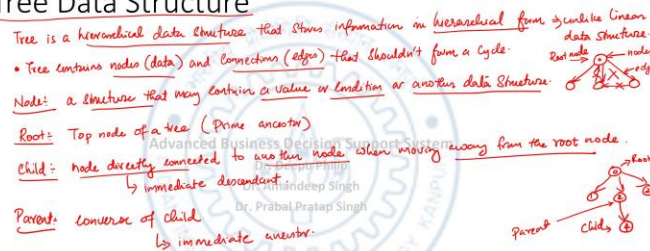 Tree Data Structure
Tree is a hierarchical data structure that stores information in hierarchical form → unlike linear data structure.
• Tree contains nodes (data) and connections (edges) that shouldn't form a cycle.
Root node
node
edge
Node:- a structure that may contain a value or condition or another data structure.
Root:- Top node of a tree (Prime ancestor)
Advanced Business Decision Support System
Child:- node directly connected to another node when moving away from the root node.
Dr. Deepu Philip
↳ immediate descendant.
Dr. Amandeep Singh
Root
Dr. Prabal Pratap Singh
Parent:- converse of child
↳ immediate ancestor.
Parent
Child
KANPUR